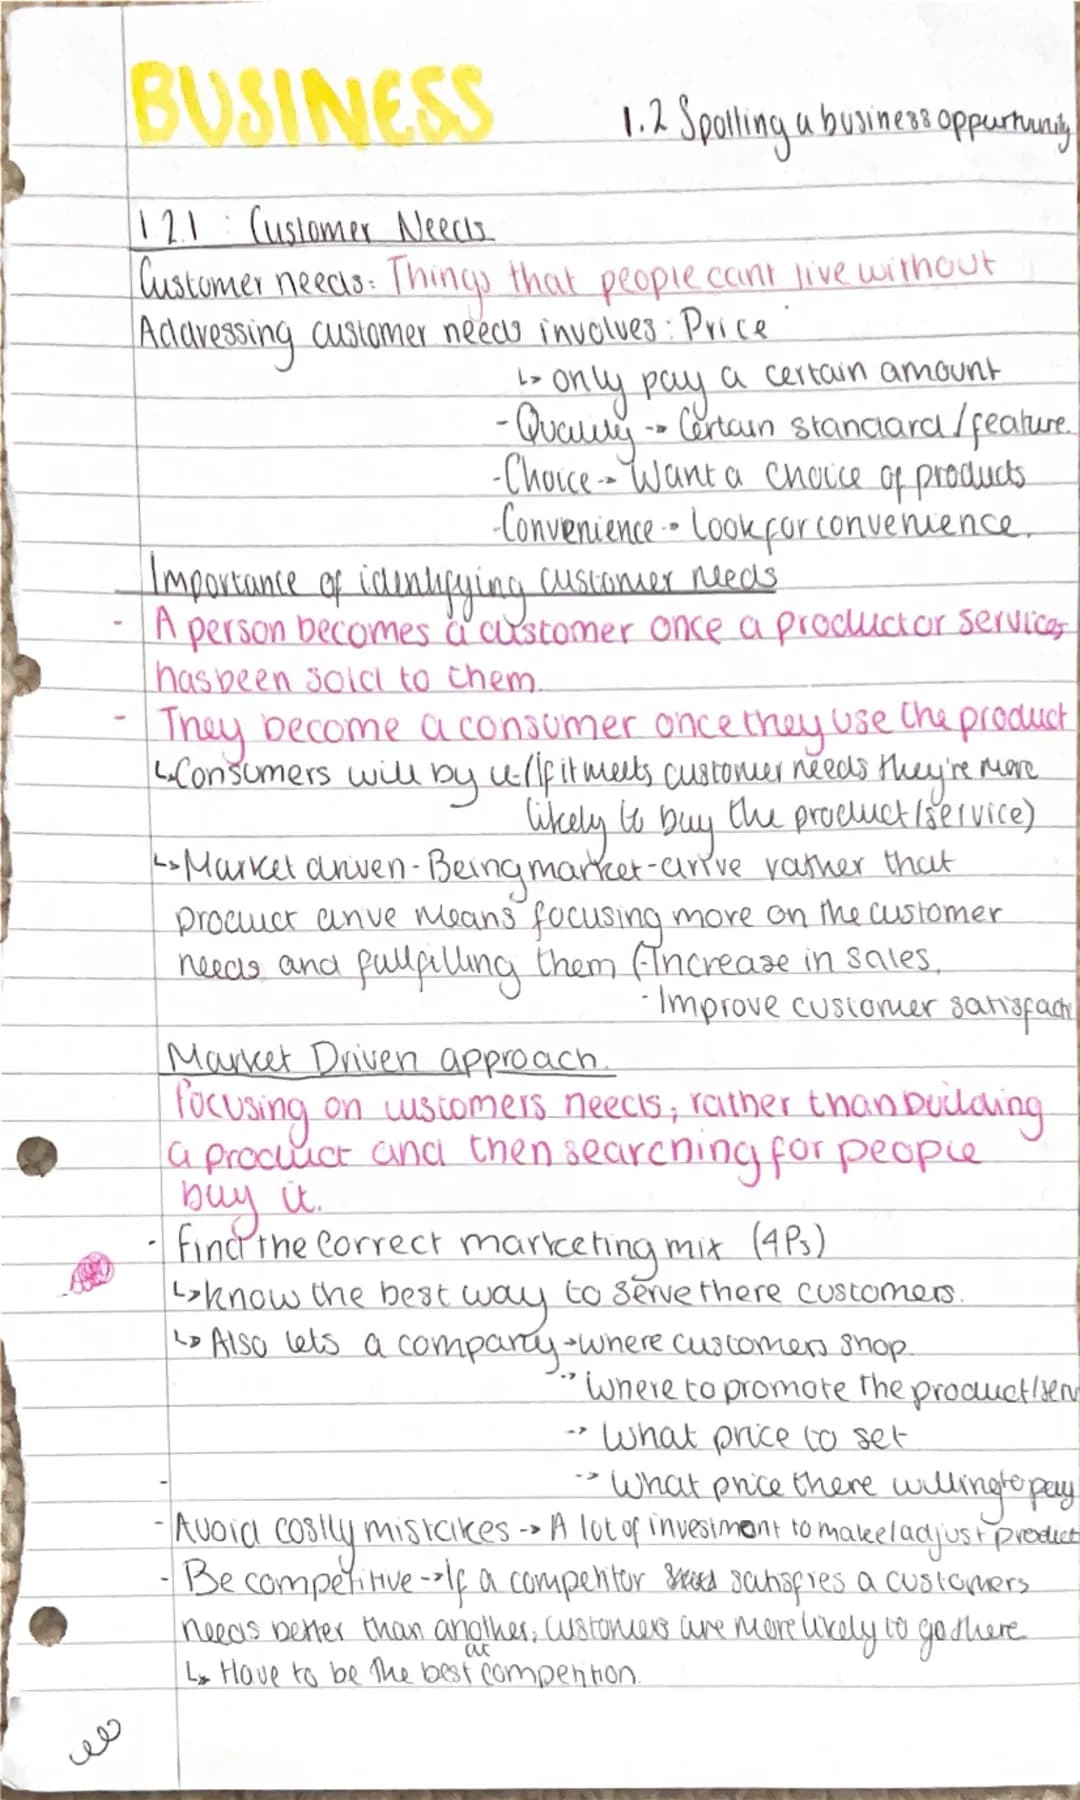 BUSINESS
1.2 Spotting a business oppurtunity
1.2.1 : Customer Needs
Customer needs: Things that people cant live without
Addressing customer needs involves : Price
↳ only pay a certain amount
- Quality -> Certain standard / feature
- Choice -> Want a choice of products
- Convenience -> look for convenience.
Importance of identifying customer needs
- A person becomes a customer once a product or services
has been sold to them.
- They become a consumer once they use the product
↳ Consumers will by it / If it meets customer needs they're more
likely to buy the product / service)
↳ Market driven - Being market-drive rather that
product drive means focusing more on the customer
needs and fullfilling them (-Increase in sales.
- Improve customer satisfact
Market Driven approach.
focusing on customers needs, rather than building
a product and then searching for people
buy it.
- find the correct marketing mix (4Ps)
↳ know the best way to serve there customers.
↳ Also lets a company -> where customers shop
-> where to promote the product/serv
-> What price to set
-
-> What price there willing to pay
- Avoid costly mistakes -> A lot of investment to make/adjust product
- Be competitive -> If a competitor satisfies a customers
needs better than another, customers are more likely to go there
↳ Have to be the best at competition.